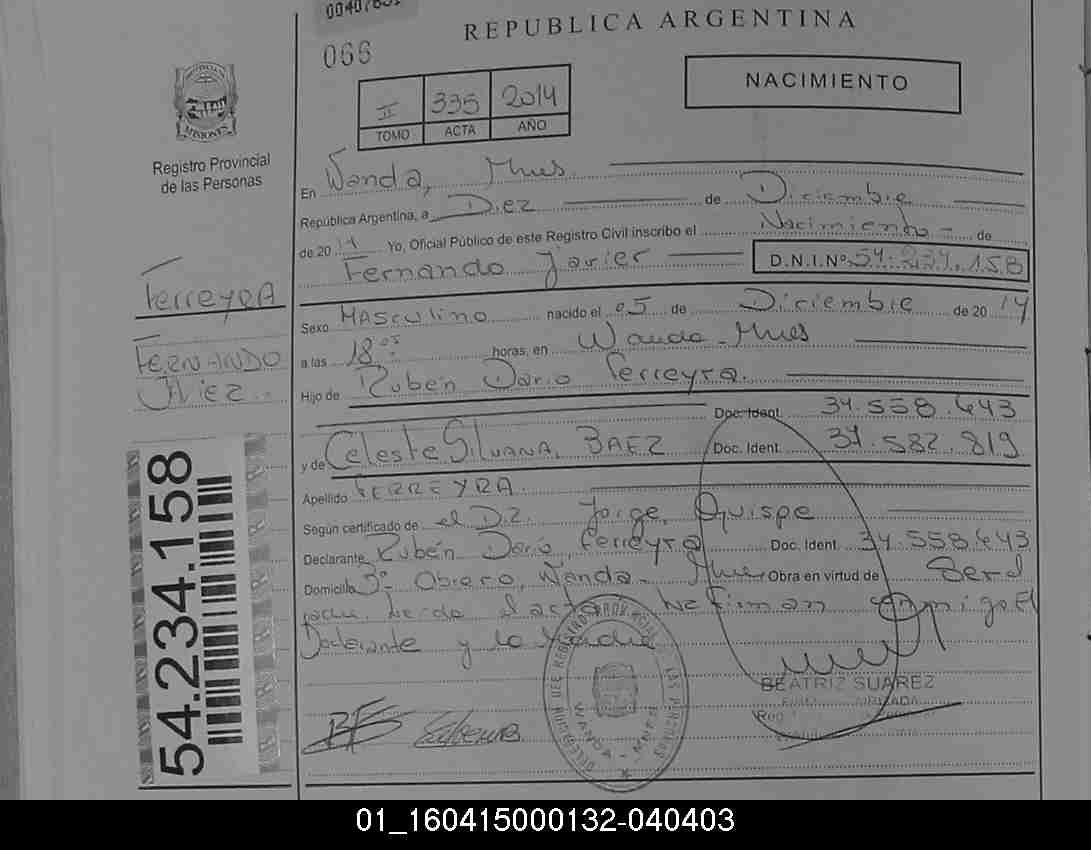 066
REPUBLICA ARGENTINA
NACIMIENTO
II 335 2014
TOMO ACTA AÑO
PROVINCIA DE MISIONES
Registro Provincial
de las Personas
En Wanda, Mnes.
República Argentina, a Diez de Diciembre
de 2014 Yo, Oficial Público de este Registro Civil inscribo el Nacimiento de
Fernando Javier D.N.I.Nº 54.234.158
Ferreyra
Fernando
Sexo Masculino nacido el 05 de Diciembre de 2014
a las 18:05 horas, en Wanda - Mnes
Hijo de Rubén Dario Ferreyra.
Doc. Ident. 34.558.643
y de Celeste Silvana, BAEZ Doc. Ident.
Apellido FERREYRA.
Según certificado de el Dr. Jorge, Quispe
Declarante Rubén Dario, Ferreyra Doc. Ident. 34.558.643
Domicilio Bº Obrero, Wanda - Mnes Obra en virtud de
Firman conmigo El
Declarante y la
BEATRIZ SUAREZ
54.234.158
01_160415000132-040403